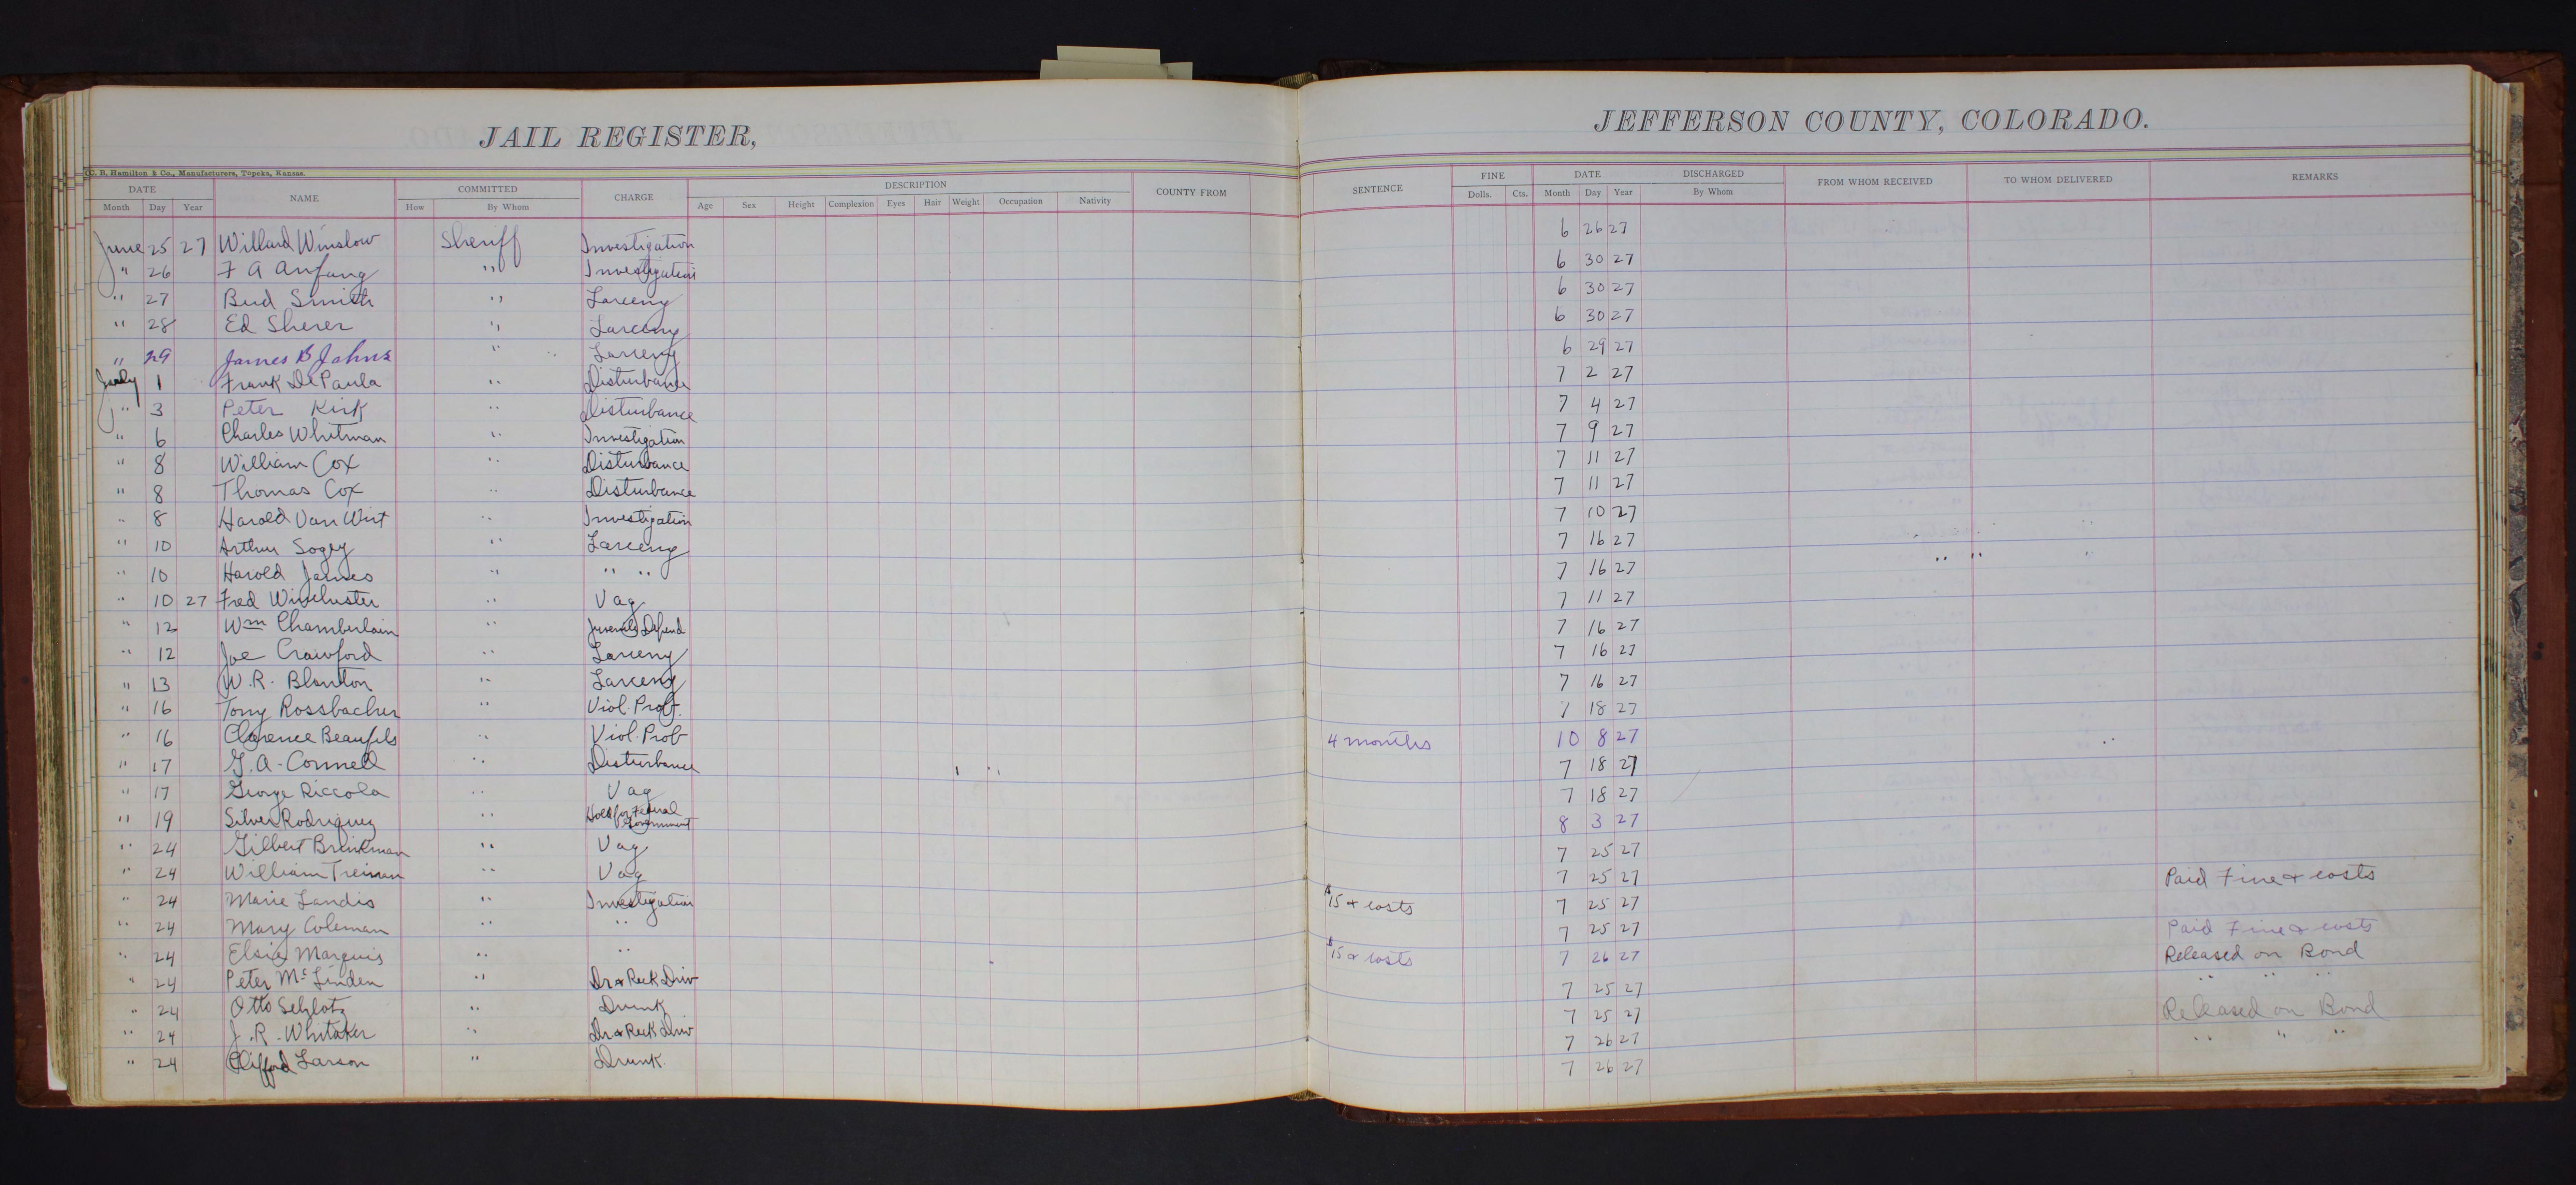 JAIL REGISTER,
JEFFERSON COUNTY, COLORADO.
C. B. Hamilton & Co., Manufacturers, Topeka, Kansas.
DATE NAME COMMITTED CHARGE DESCRIPTION COUNTY FROM SENTENCE FINE DATE DISCHARGED FROM WHOM RECEIVED TO WHOM DELIVERED REMARKS
Month Day Year How By Whom Age Sex Height Complexion Eyes Hair Weight Occupation Nativity Dolls. Cts. Month Day Year By Whom
June 25 27 Willard Winslow Sheriff Investigation 6 26 27
" 26 F A Anfang " Investigation 6 30 27
" 27 Bud Smith " Larceny 6 30 27
" 28 Ed Sherer " Larceny 6 30 27
" 29 James B Johns " Larceny 6 29 27
July 1 Frank De Paula " Disturbance 7 2 27
" 3 Peter Kirk " Disturbance 7 4 27
" 6 Charles Whitman " Investigation 7 9 27
" 8 William Cox " Disturbance 7 11 27
" 8 Thomas Cox " Disturbance 7 11 27
" 8 Harold Van Wirt " Investigation 7 10 27
" 10 Arthur Sogey " Larceny 7 16 27
" 10 Harold James " " " 7 16 27
" 10 27 Fred Winchuster " Vag 7 11 27
" 12 Wm Chamberlain " Juvenile 7 16 27
" 12 Joe Crawford " Larceny 7 16 27
" 13 W. R. Blanton " Larceny 7 16 27
" 16 Tony Rossbacher " Viol. Prob. 7 18 27
" 16 Clarence Beaufils " Viol. Prob 4 months 10 8 27
" 17 G. A. Connell " Disturbance 7 18 27
" 17 George Riccola " Vag 7 18 27
" 19 Silver Rodriguez " Hold for Federal Government 8 3 27
" 24 Gilbert Brinkman " Vag 7 25 27
" 24 William Treiman " Vag 7 25 27 Paid Fine & costs
" 24 Marie Landis " Investigation $15 & costs 7 25 27
" 24 Mary Coleman " " 7 25 27 Paid Fine & costs
" 24 Elsie Marquis " " $15 & costs 7 26 27 Released on Bond
" 24 Peter Mc Linden " Dr & Reck Driv 7 25 27 " " "
" 24 Otto " Drunk 7 25 27 Released on Bond
" 24 J. R. Whitaker " Dr & Reck Driv 7 26 27 " " "
" 24 Clifford Larson " Drunk. 7 26 27